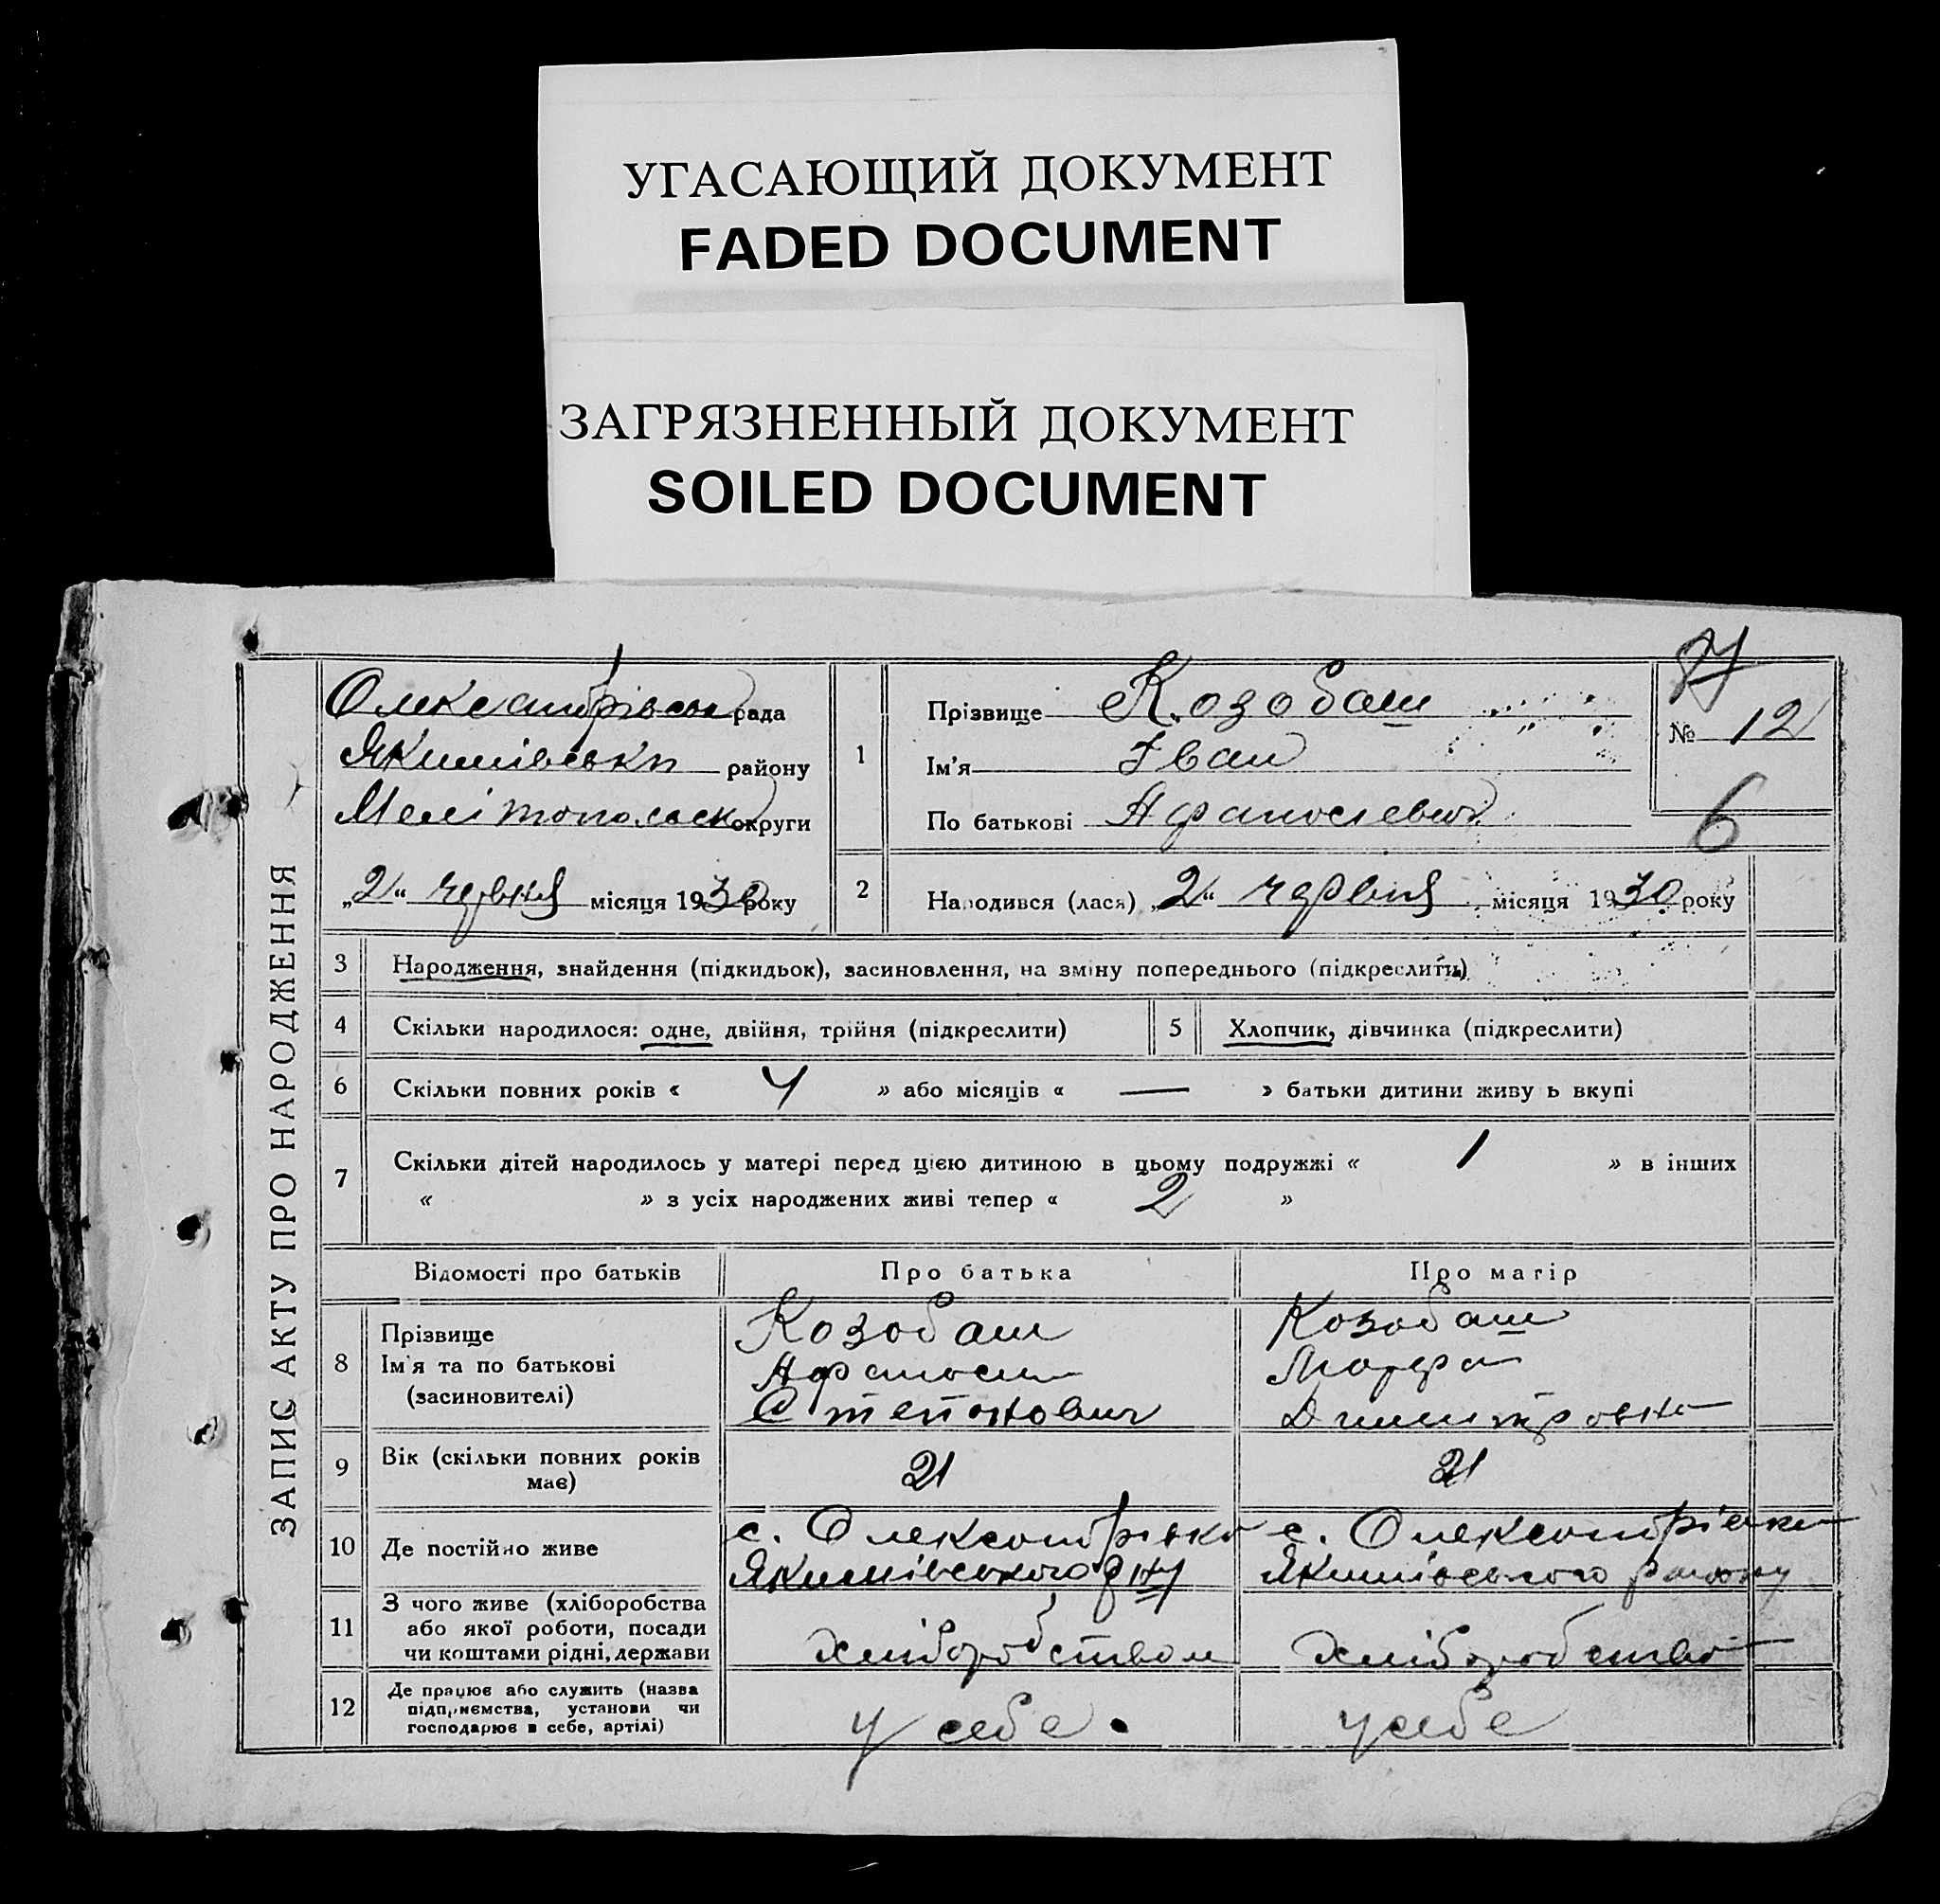 УГАСАЮЩИЙ ДОКУМЕНТ
FADED DOCUMENT
ЗАГРЯЗНЕННЫЙ ДОКУМЕНТ
SOILED DOCUMENT
ЗАПИС АКТУ ПРО НАРОДЖЕННЯ
Олександрівська рада
Якимівськ району
Мелітопольск округи
„2“ червня місяця 1930 року
1
Прізвище Козобаш
Ім'я Іван
По батькові Афанасієвич
№ 12
6
2 Народився (лася) „2“ червня місяця 1930 року
3 Народження, знайдення (підкидьок), засиновлення, на зміну попереднього (підкреслити)
4 Скільки народилося: одне, двійня, трійня (підкреслити) 5 Хлопчик, дівчинка (підкреслити)
6 Скільки повних років « 4 » або місяців « — » батьки дитини живу ь вкупі
7 Скільки дітей народилось у матері перед цією дитиною в цьому подружжі « 1 » в інших
« » з усіх народжених живі тепер « 2 »
Відомості про батьків Про батька Про матір
8 Прізвище Козобаш Козобаш
Ім'я та по батькові Афанасий Марфа
(засиновителі) Степанович Дмитровна
9 Вік (скільки повних років має) 21 21
10 Де постійно живе с. Олександрівка с. Олександрівка
Якимівського р-ну Якимівського району
11 З чого живе (хліборобства
або якої роботи, посади
чи коштами рідні, держави хліборобством хліборобство
12 Де працює або служить (назва
підприємства, установи чи
господарює в себе, артілі) у себе. у себе